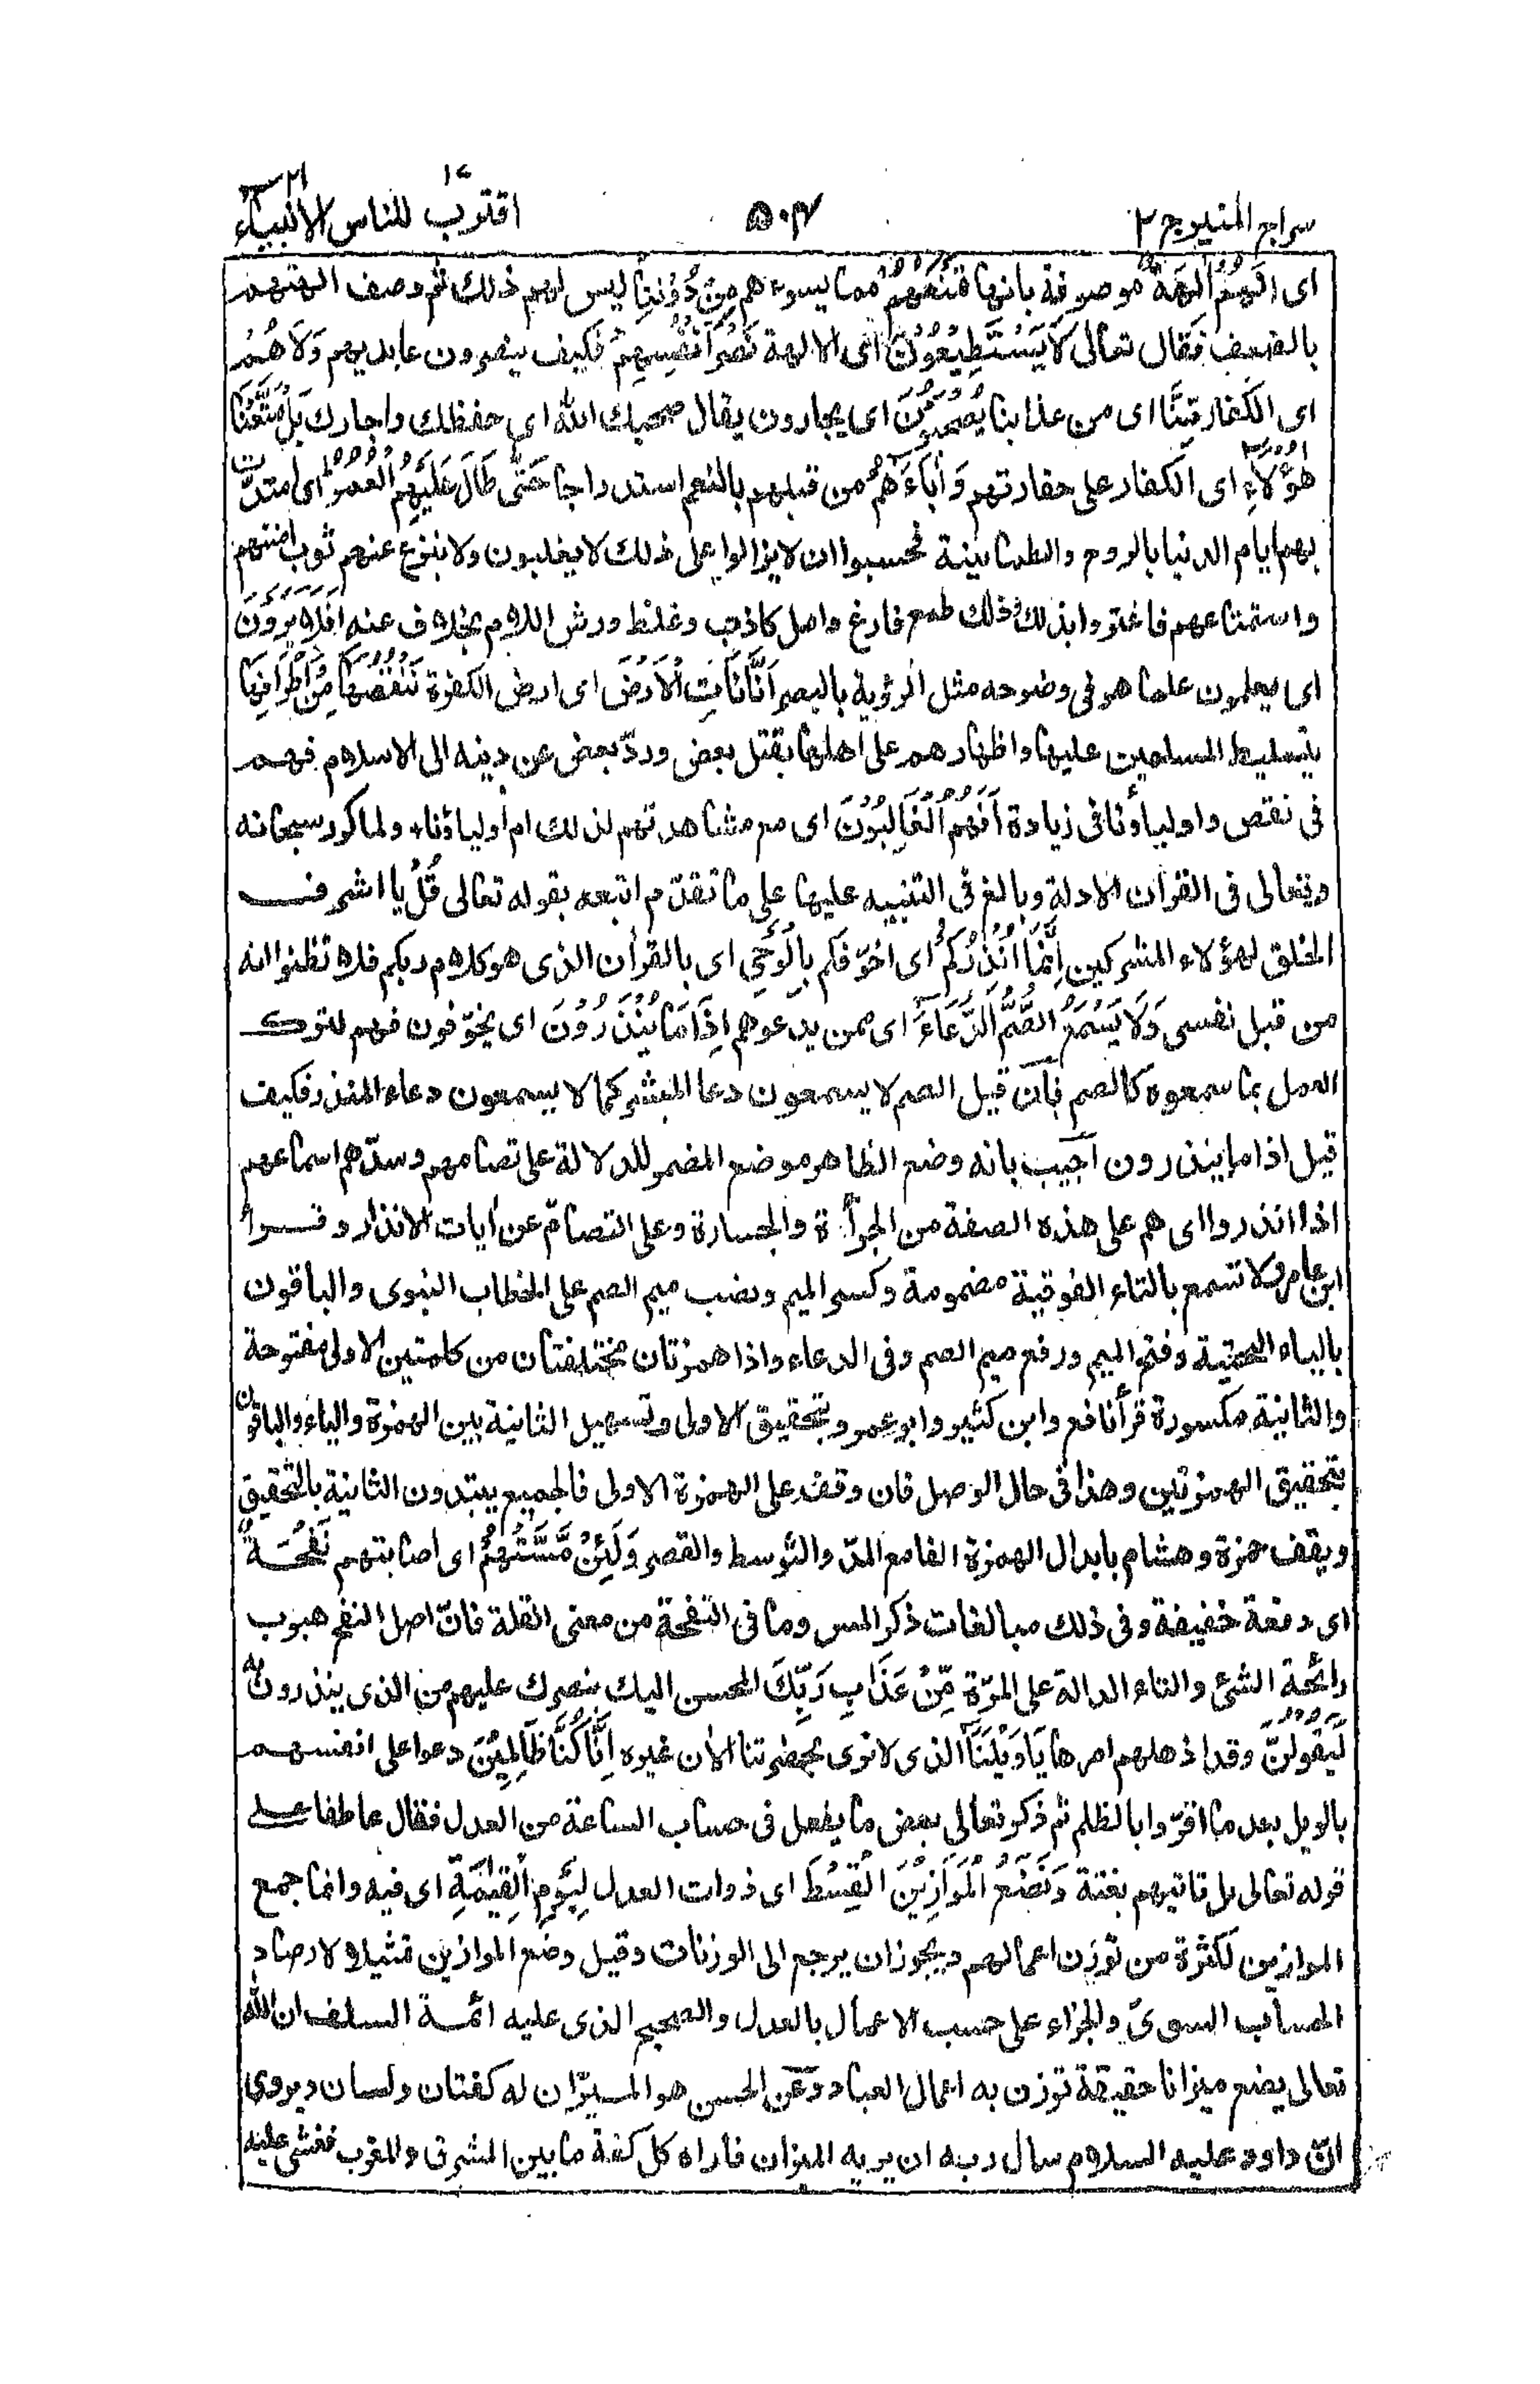 سراج المنير ج ٢
٥٠٧
اقترب للناس ١٧ الانبياء ٢١
اى اَلَهُمْ اٰلِهَةٌ موصوفة بانها تَمْنَعُهُمْ مما يسوءهم مِنْ دُوْنِنَا ليس لهم ذلك ثم وصف الهتهم
بالضعف فقال تعالى لَا يَسْتَطِيْعُوْنَ اى الالهة نَصْرَ اَنْفُسِهِمْ فكيف ينصرون عابديهم وَلَا هُمْ
اى الكفار مِنَّا اى من عذابنا يُصْحَبُوْنَ اى يجارون يقال صحبك الله اى حفظك واجارك بَلْ مَتَّعْنَا
هٰؤُلَاۤءِ اى الكفار على حقارتهم وَاٰبَاۤءَهُمْ من قبلهم بالنعم استدراجا حَتّٰى طَالَ عَلَيْهِمُ الْعُمُرُ اى امتدت
بهم ايام الدنيا بالروح والطمانينة فحسبوا ان لا يزالوا على ذلك لا يغلبون ولا ينزع عنهم ثوب امنتهم
واستمتاعهم فاغتروا بذلك وذلك طمع فارغ وامل كاذب وغلظ ورش اللام بخلاف عنه اَفَلَا يَرَوْنَ
اى يعلمون علما هو فى وضوحه مثل الرؤية بالبصر اَنَّا نَاْتِى الْاَرْضَ اى ارض الكفرة نَنْقُصُهَا مِنْ اَطْرَافِهَا
بتسليط المسلمين عليها واظهارهم على اهلها بقتل بعض وردّ بعض عن دينه الى الاسلام فهم
فى نقص واولياؤنا فى زيادة اَفَهُمُ الْغَالِبُوْنَ اى مع مشاهدتهم لذلك ام اولياؤناء ولما كرر سبحانه
وتعالى فى القران الادلة وبالغ فى التنبيه عليها على ما تقدّم اتبعه بقوله تعالى قُلْ يا اشرف
الخلق لهؤلاء المشركين اِنَّمَا اُنْذِرُكُمْ اى اخوّفكم بِالْوَحْىِ اى بالقرأن الذى هو كلام ربكم فلا تظنوا انه
من قبل نفسى وَلَا يَسْمَعُ الصُّمُّ الدُّعَاۤءَ اى ممن يدعوهم اِذَا مَا يُنْذَرُوْنَ اى يخوّفون فهم لترك
العمل بما سمعوه كالصم فان قيل الصم لا يسمعون دعا المبشر كما لا يسمعون دعاء المنذر فكيف
قيل اذا ما ينذرون اجيب بانه وضع الظاهر موضع المضمر للدلالة على تصامهم وسدّهم اسماعهم
اذا انذروا اى هم على هذه الصفة من الجرأة والجسارة وعلى التصامّ عن أيات الانذار وقرأ
ابن عامر ولا تسمع بالتاء الفوقية مضمومة وكسر الميم ونصب ميم الصم على الخطاب النبوى والباقون
بالياء التحتية وفتح الميم ورفع ميم الصم وفى الدعاء واذا همزتان مختلفتان من كلمتين الاولى مفتوحة
والثانية مكسورة قرأ نافع وابن كثير وابو عمرو بتحقيق الاولى وتسهيل الثانية بين الهمزة والياء والباقون
بتحقيق الهمزتين وهذا فى حال الوصل فان وقف على الهمزة الاولى فالجميع يبتدون الثانية بالتحقيق
ويقف حمزة وهشام بابدال الهمزة الفا مع المدّ والتوسط والقصر وَلَئِنْ مَّسَّتْهُمْ اى اصابتهم نَفْحَةٌ
اى دفعة خفيفة وفى ذلك مبالغات ذكر المس وما فى النفحة من معنى القلة فانّ اصل النفح هبوب
رائحة الشئ والتاء الدالة على المرّة مِّنْ عَذَابِ رَبِّكَ المحسن اليك بنصرك عليهم من الذى ينذرون به
لَيَقُوْلُنَّ وقد اذهلهم امرها يَا وَيْلَنَاۤ الذى لا نرى بحضرتنا الأن غيره اِنَّا كُنَّا ظَالِمِيْنَ دعوا على انفسهم
بالويل بعد ما اقرّوا بالظلم ثم ذكر تعالى بعض ما يفعل فى حساب الساعة من العدل فقال عاطفا على
قوله تعالى بل تاتيهم بغتة وَنَضَعُ الْمَوَازِيْنَ الْقِسْطَ اى ذوات العدل لِيَوْمِ الْقِيٰمَةِ اى فيه وانما جمع
الموازين لكثرة من توزن اعمالهم ويجوز ان يرجع الى الوزنات وقيل وضع الموازين تمثيلا لارصاد
الحساب السوىّ والجزاء على حسب الاعمال بالعدل والصحيح الذى عليه ائمة السلف ان الله
تعالى يضع ميزانا حقيقة توزن به اعمال العباد وعن الحسن هو الميزان له كفتان ولسان ويروى
انّ داود عليه السلام سال ربه ان يريه الميزان فاراه كل كفة ما بين المشرق والمغرب فغشى عليه